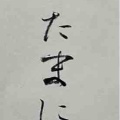 たまに